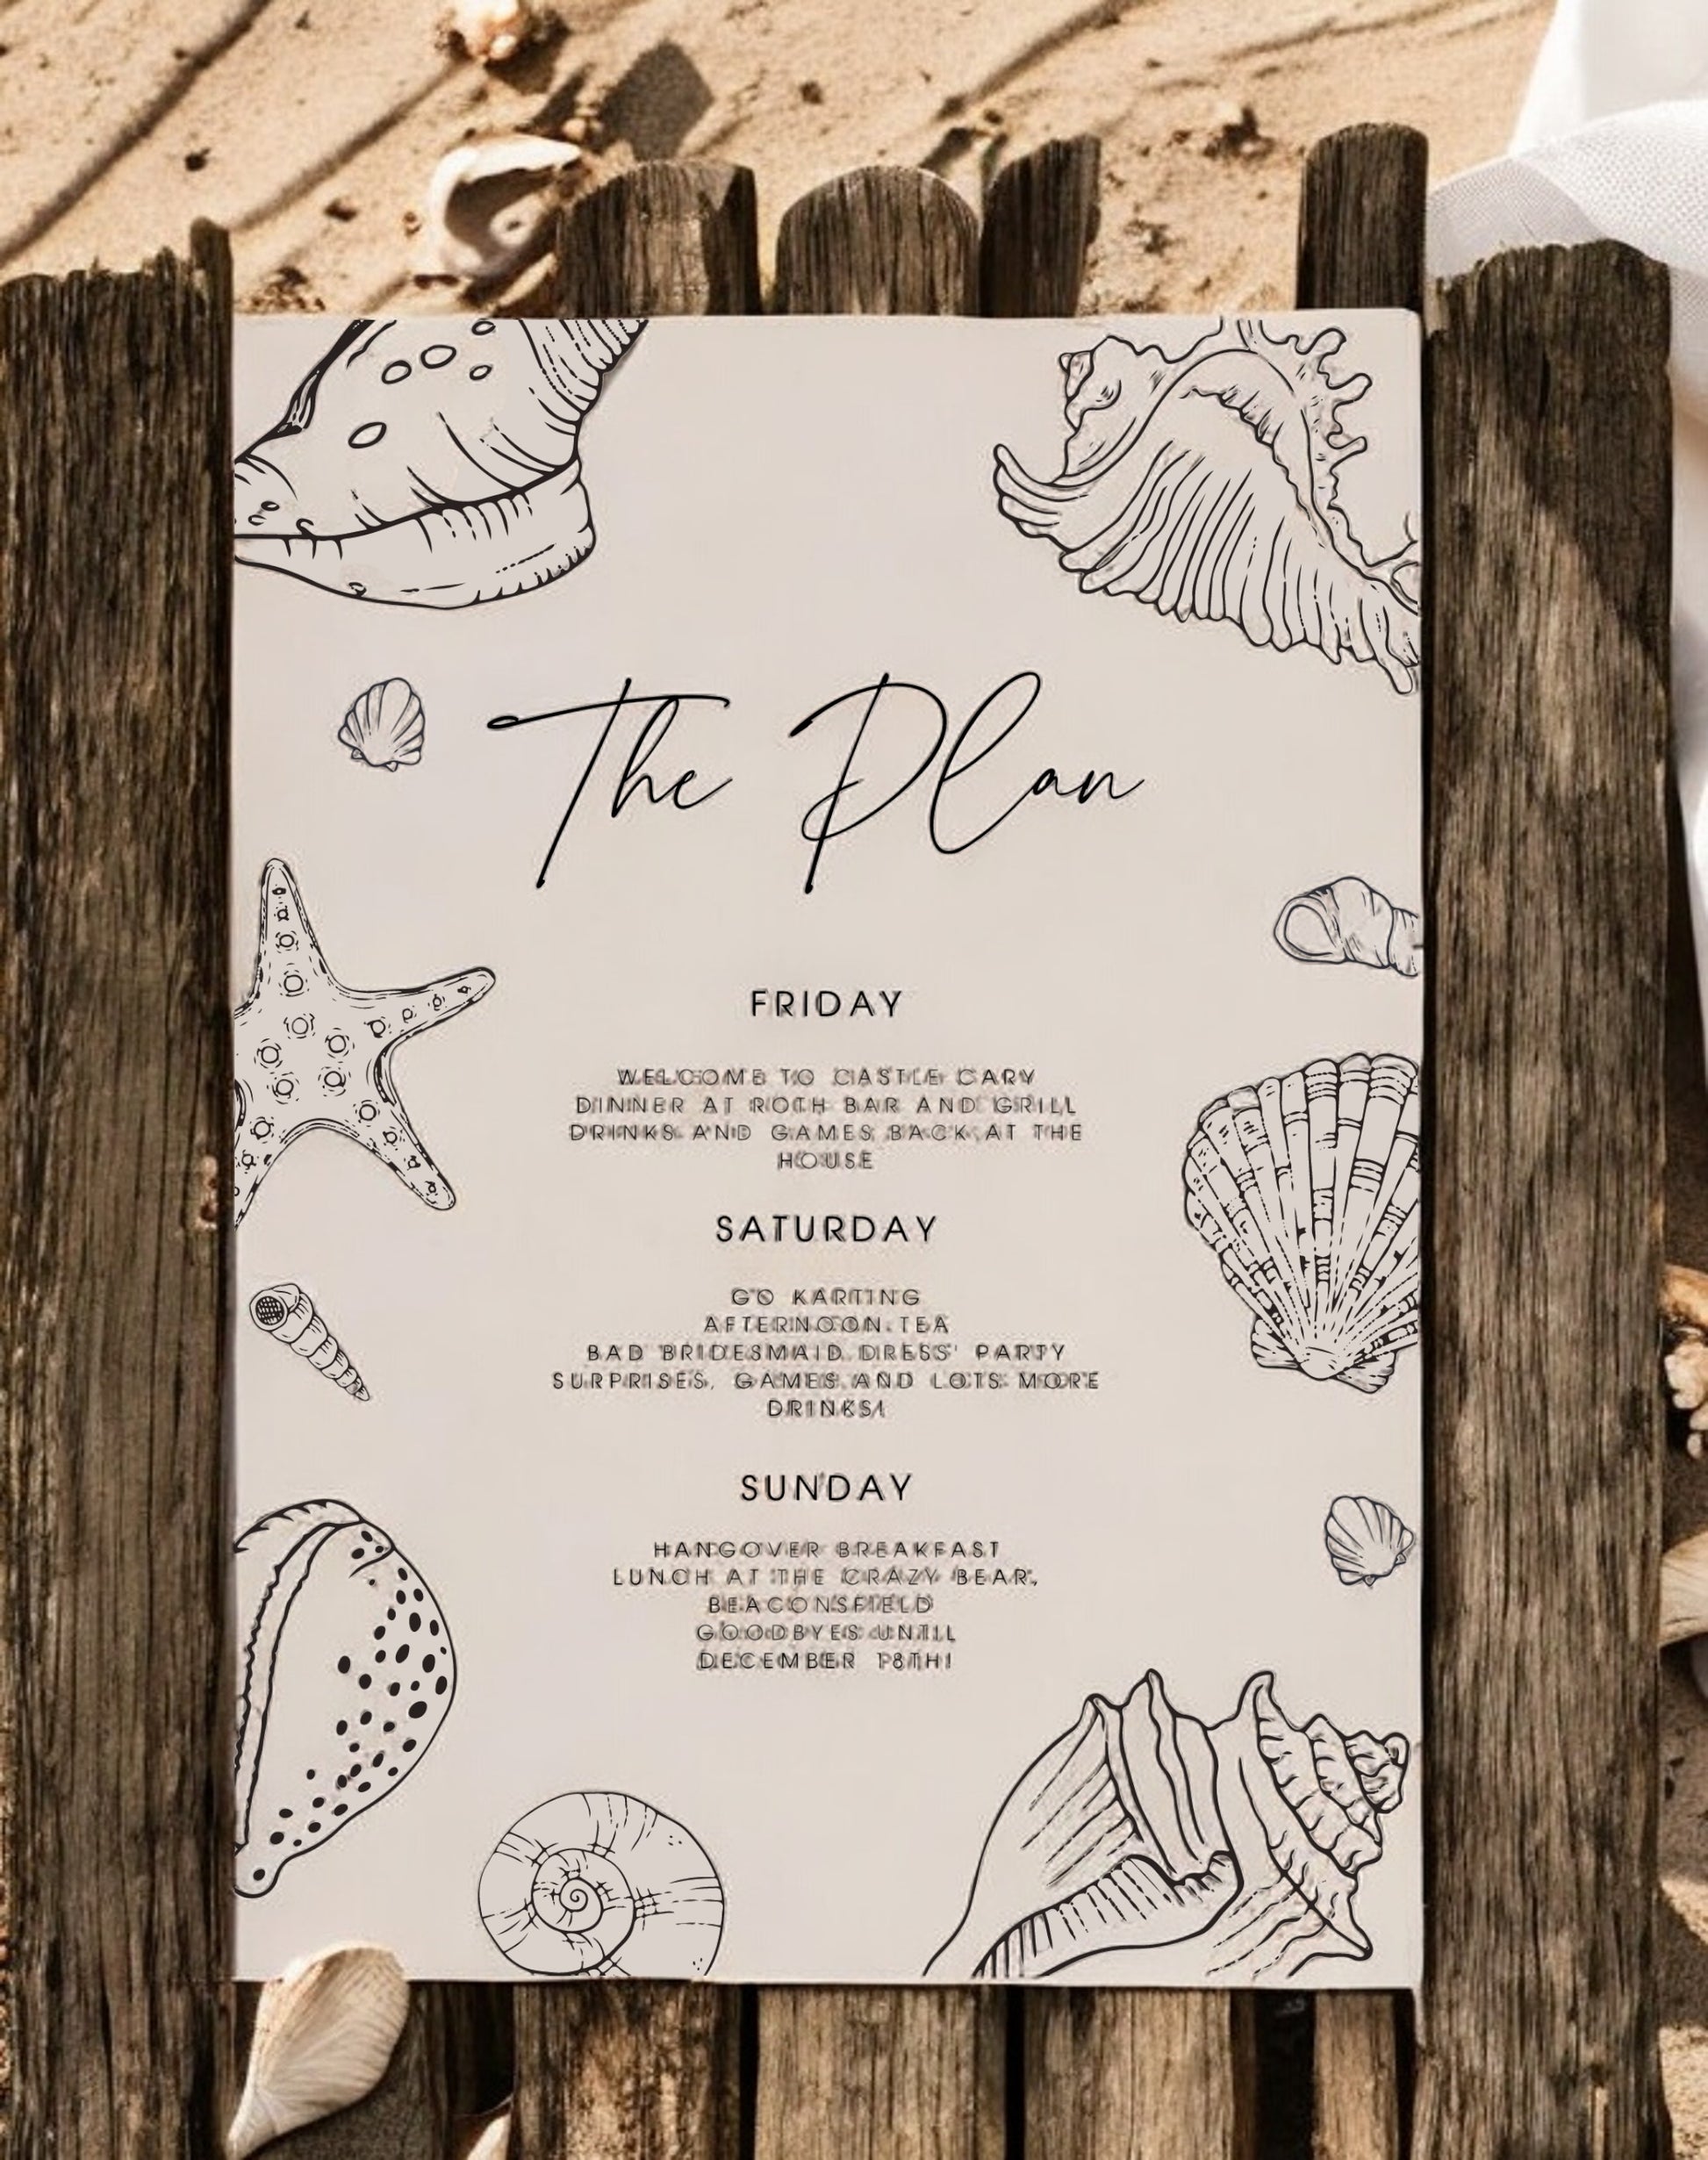 The Plan
FRIDAY
WELCOME TO CASTLE CARY
DINNER AT ROTH BAR AND GRILL
DRINKS AND GAMES BACK AT THE
HOUSE
SATURDAY
GO KARTING
AFTERNOON TEA
BAD BRIDESMAID DRESS' PARTY
SURPRISES, GAMES AND LOTS MORE
DRINKS!
SUNDAY
HANGOVER BREAKFAST
LUNCH AT THE CRAZY BEAR,
BEACONSFIELD
GOODBYES UNTIL
DECEMBER 18TH!